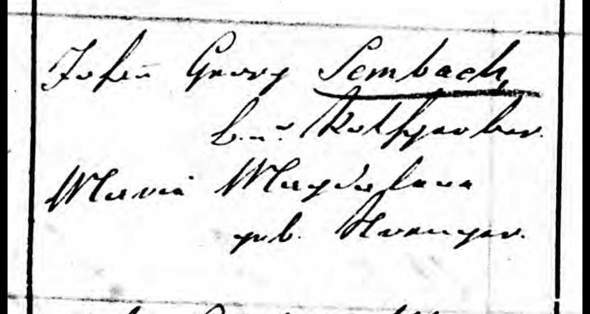 Johan̄ Georg Sembach,
b. u. Rothgerber.
Maria Magdalena
geb.